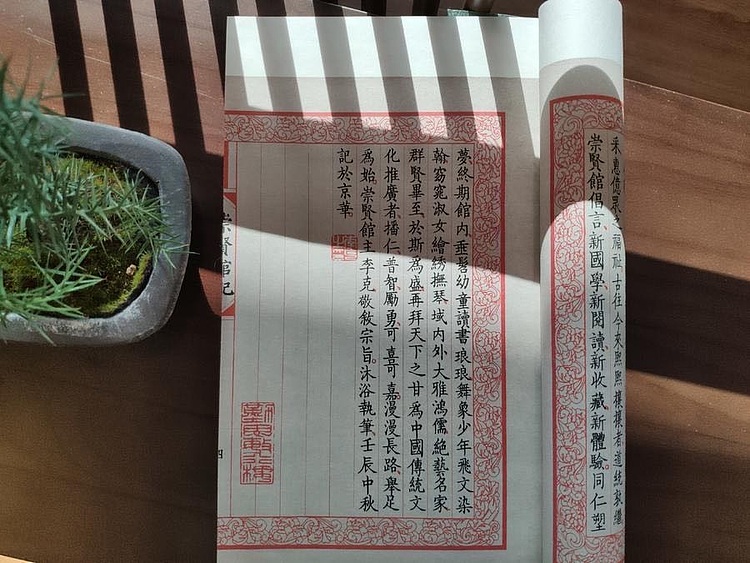 永惠億眾之福祉古往今來熙熙攘攘者道統孰繼
崇賢館倡言新國學新閱讀新收藏新體驗同仁塑
夢終期館內垂髫幼童讀書琅琅舞象少年飛文染
翰窈窕淑女繪綉撫琴域內外大雅鴻儒絕藝名家
群賢畢至於斯為盛再拜天下之甘為中國傳統文
化推廣者播仁普智勵勇可喜可嘉漫漫長路舉足
為始崇賢館主李克敬敘宗旨沐浴執筆壬辰中秋
記於京華
崇賢館記
四